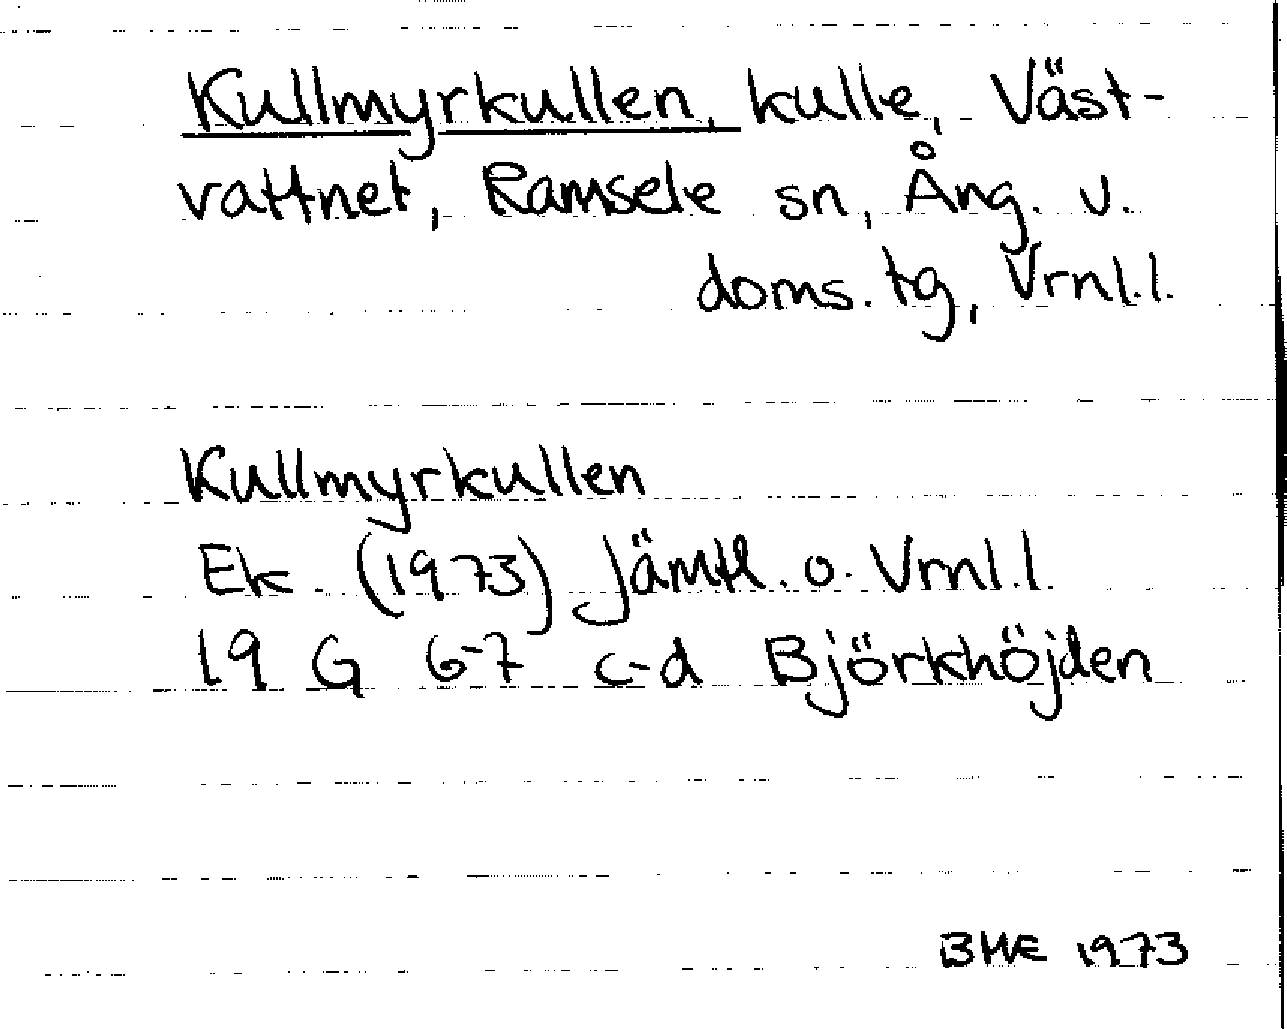 Kullmyrkullen, kulle, Väst-
vattnet, Ramsele sn, Ång. v.
doms. tg, Vrnl.l.
Kullmyrkullen
Ek (1973) Jämtl. o. Vrnl.l.
19 G 6-7 c-d Björkhöjden
BHE 1973